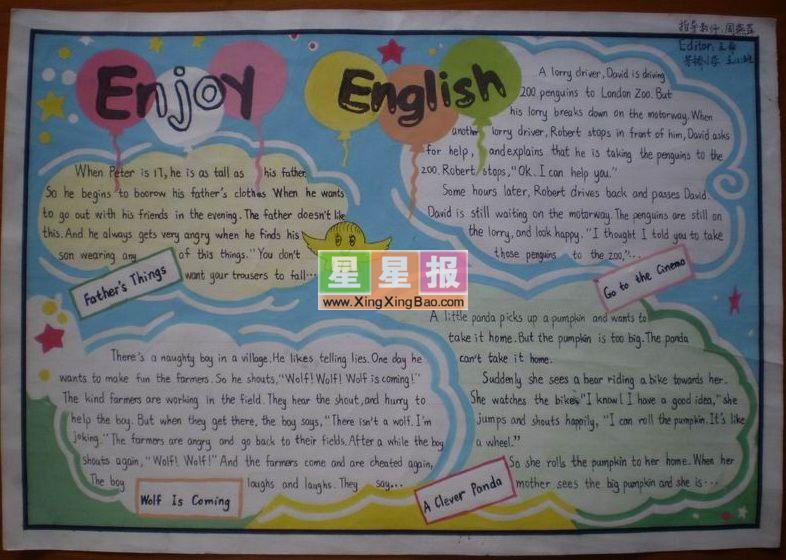 Enjoy English
指导教师:周燕萍
Editor:
When Peter is 17, he is as tall as his father.
So he begins to boorow his father's clothes When he wants
to go out with his friends in the evening. The father doesn't like
this. And he always gets very angry when he finds his
son wearing any of this things. "You don't
want your trousers to fall...
Father's Things
A lorry driver, David is driving
200 penguins to London Zoo. But
his lorry breaks down on the motorway. When
another lorry driver, Robert stops in front of him, David asks
for help, and explains that he is taking the penguins to the
zoo. Robert stops, "Ok. I can help you."
Some hours later, Robert drives back and passes David.
David is still waiting on the motorway. The penguins are still on
the lorry, and look happy. "I thought I told you to take
those penguins to the zoo,"...
Go to the Cinema
星星报
www.XingXingBao.com
There's a naughty boy in a village. He likes telling lies. One day he
wants to make fun the farmers. So he shouts, "Wolf! Wolf! Wolf is coming!"
The kind farmers are working in the field. They hear the shout, and hurry to
help the boy. But when they get there, the boy says, "There isn't a wolf. I'm
joking." The farmers are angry and go back to their fields. After a while the boy
shouts again, "Wolf! Wolf!" And the farmers come and are cheated again,
The boy laughs and laughs. They say...
Wolf Is Coming
A little panda picks up a pumpkin and wants to
take it home. But the pumpkin is too big. The panda
can't take it home.
Suddenly she sees a bear riding a bike towards her.
She watches the bike. "I know! I have a good idea," she
jumps and shouts happily, "I can roll the pumpkin. It's like
a wheel."
So she rolls the pumpkin to her home. When her
mother sees the big pumpkin and she is...
A Clever Panda